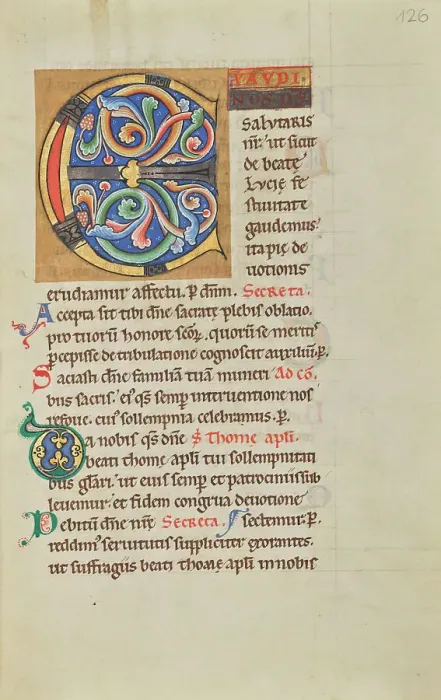 126
EXAUDI
NOS DS
Salutaris
nr̄: ut sicut
de beate
Lucie fe
stiuitate
gaudemus:
ita pie de
uotionis
erudiamur affectu. ꝑ dn̄m. Secreta.
Accepta sit tibi dn̄e sacrate plebis oblatio.
pro tuorū honore scōꝝ. quorū se meritis
ꝑcepisse de tribulatione cognoscit auxiliū. ꝑ.
Saciasti dn̄e familiā tuā muneri Ad cō.
bus sacris. eiꝰ qs̄ semꝑ interuentione nos
refoue. cuiꝰ sollempnia celebramus. ꝑ.
Da nobis qs̄ dn̄e S̄ Thome apli.
beati thome apli tui sollempnitati
bus glāri. ut eius semꝑ et patrociniis sub
leuemur. et fidem congrua deuotione
Debitū dn̄e nr̄e Secreta. sectemur. ꝑ.
reddimꝰ seruitutis suppliciter exorantes.
ut suffragiis beati thome apli in nobis